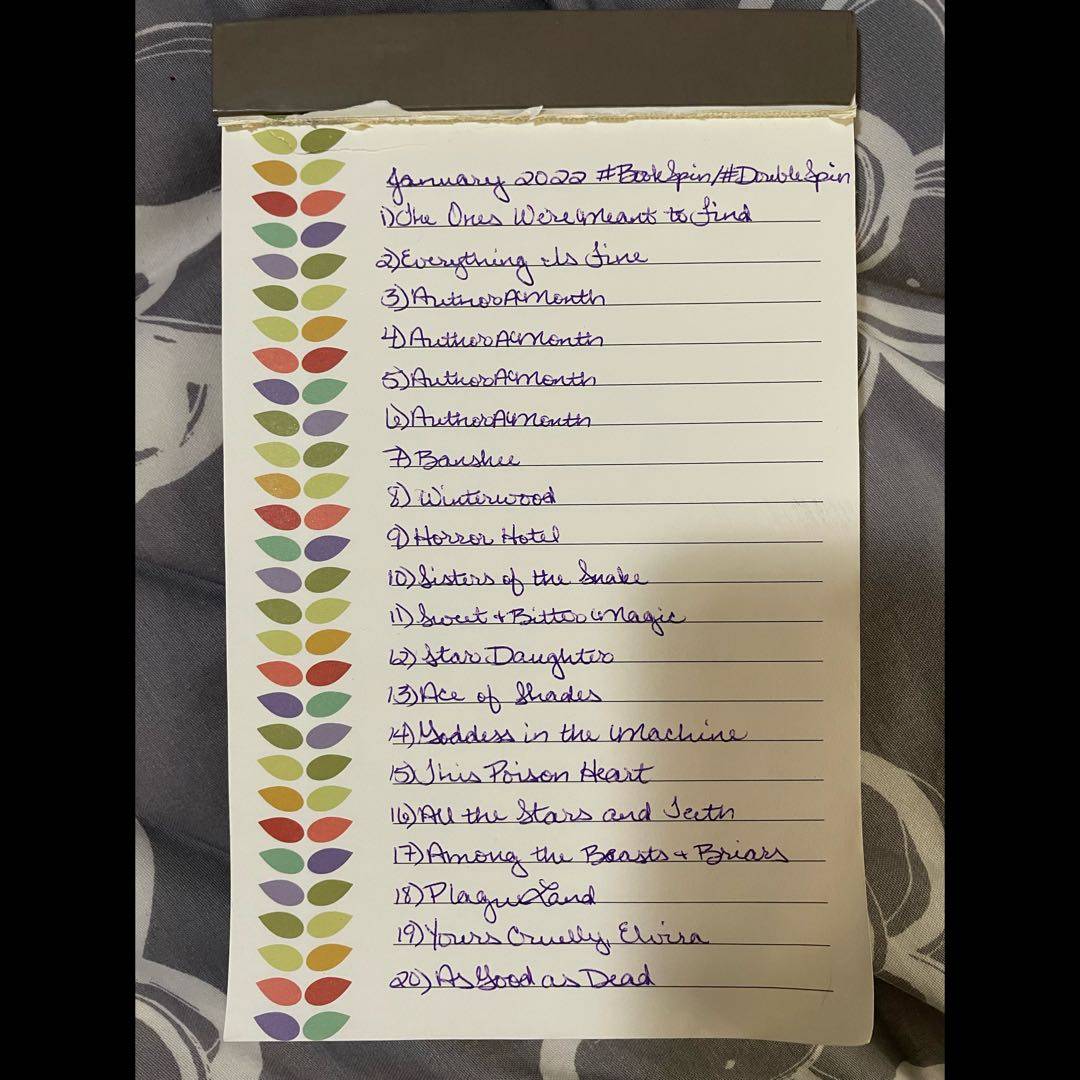 January 2022 #BookSpin/#DoubleSpin
1) The Ones We're Meant to Find
2) Everything Is Fine
3) AuthorAMonth
4) AuthorAMonth
5) AuthorAMonth
6) AuthorAMonth
7) Banshee
8) Winterwood
9) Horror Hotel
10) Sisters of the Snake
11) Sweet + Bitter Magic
12) Star Daughter
13) Ace of Shades
14) Goddess in the Machine
15) This Poison Heart
16) All the Stars and Teeth
17) Among the Beasts + Briars
18) Plague Land
19) Yours Cruelly, Elvira
20) As Good as Dead